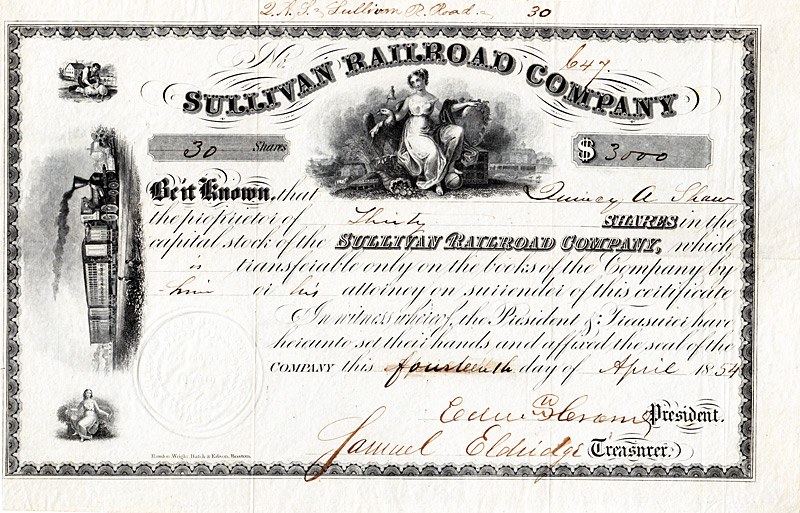 Q. A. S. Sullivan R. Road 30
No. 647
SULLIVAN RAILROAD COMPANY
30 Shares
$ 3000
Be it Known, that Quincy A Shaw
the proprietor of Thirty SHARES in the
capital stock of the SULLIVAN RAILROAD COMPANY, which
is transferable only on the books of the Company by
him or his attorney on surrender of this certificate
In witness whereof, the President & Treasurer have
hereunto set their hands and affixed the seal of the
COMPANY this fourteenth day of April 1854
President.
Samuel Eldridge Treasurer.
Rawdon, Wright, Hatch & Edson, Boston.